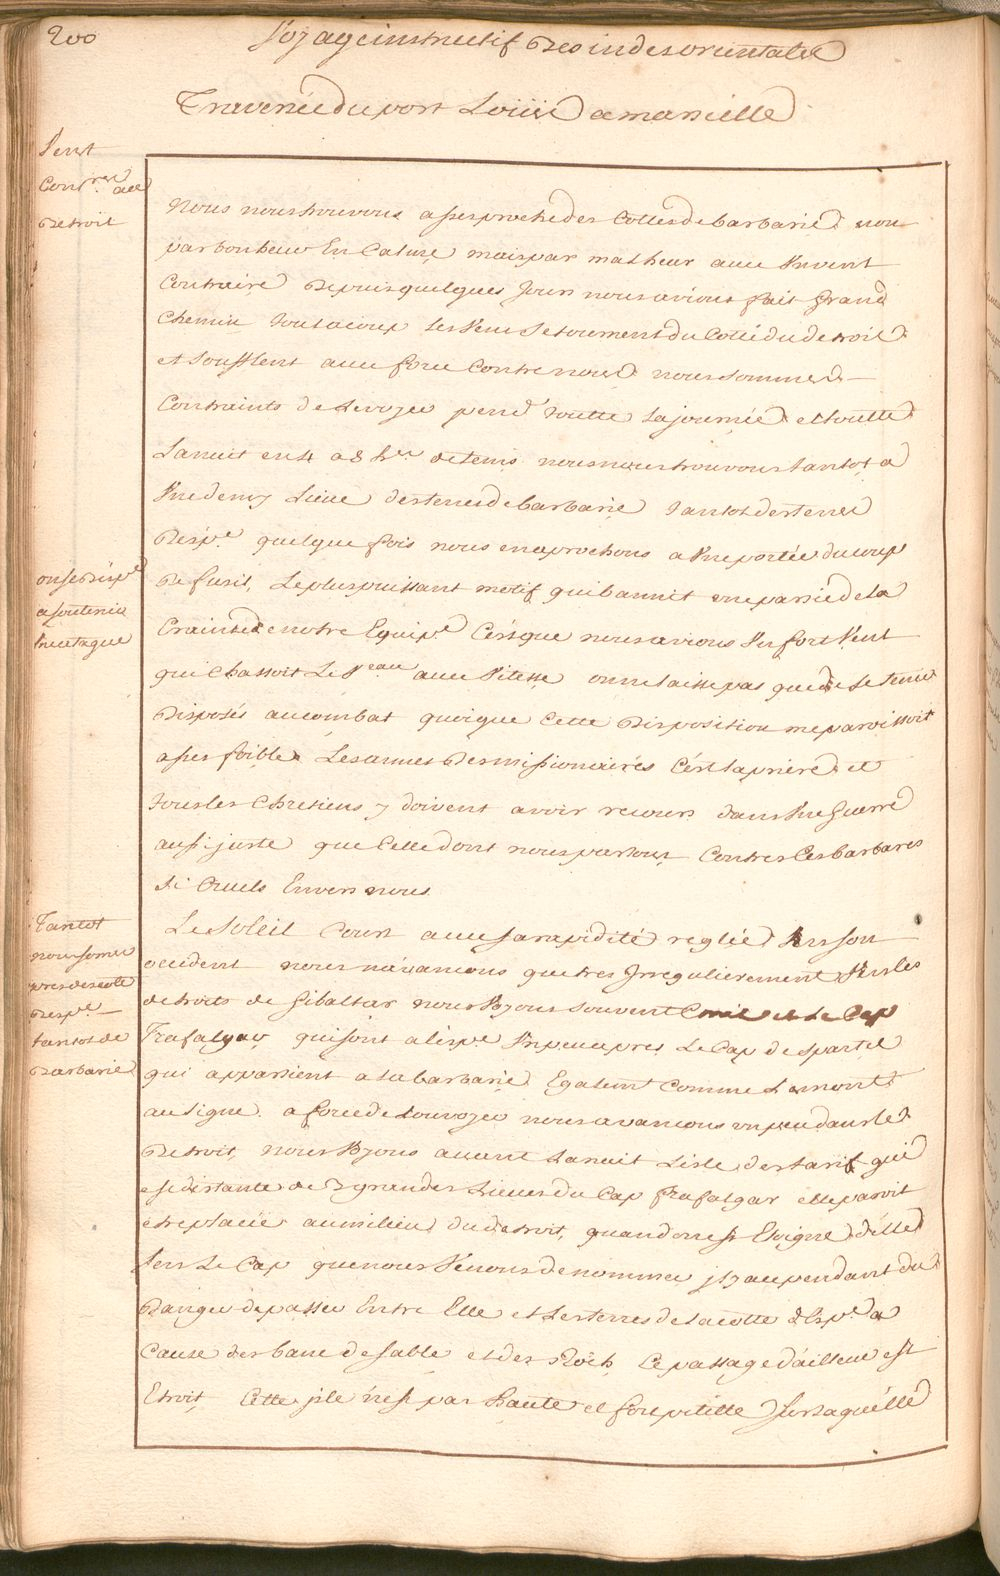 200
Voyage instructif Des indes orientales
Traversée du port Loüis a marseille
Vent
Contre. au
Detroit
Nous nous trouvons asses proche des Cottes de barbarie, non
par bonheur En Calme, mais par malheur avec Un vent
Contraire Depuis quelques Jours nous avions fait grand
Chemin tout a coup Les Vens se tournent du Cotté du detroit
et soufflent avec force Contre nous nous sommes
Contraints de Levoyer pend.t toutte La journée et toutte
La nuit en 4 a 8 h.res de tems nous nous trouvons tantot a
Une demy Lieue des terres de barbarie tantot des terres
D'esp.e quelque fois nous en aprochons a Une portée du coup
On se disp.e
a soutenir
Une ataque
De fusil, Le plus puissant motif qui bannit une partie de La
Crainte de notre Equip.e C'es que nous avions Un fort Vent
qui Chassoit Le V.eau avec Vitesse on ne Laisse pas que de se tenir
Disposés au combat quoique Cette Disposition me paroissoit
asses foible Les armes Des missionaires C'est la priere et
tous les Chretiens y doivent avoir recours dans Une guerre
aussi juste que Celle dont nous parlons Contre Ces barbares
si Cruels Envers nous
Tantot
nous somes
pres des cote
Desp.e
tantot de
Barbarie
Le Soleil Court avec sa rapidité reglée Vers son
occident nous n'avancions que tres Irregulierement Vers Les
detroits de Gibaltar nous Voyons souvent Conil et Le Cap
Trafalgar qui sont a L'esp.e Un peu apres Le Cap despartel
qui appartient a La barbarie Egalemt Comme Le mont
au Signe. a force de Louvoyer nous avancions un peu dans Le
Detroit, nous Voyons avant La nuit L'isle des tarif qui
est distante de 7 grandes Lieues du Cap Trafalgar elle paroit
etre placée au milieu du detroit, quand on est Eloigné d'elle
Vers Le Cap que nous Venons de nommer jl y a cependant du
Danger de passer Entre Elle et Les terres de La cotte d'Esp.e a
Cause des banc de sable et des Roch Ce passage d'ailleur est
Etroit, Cette jsle n'est pas haute et fort petitte sur Laquelle